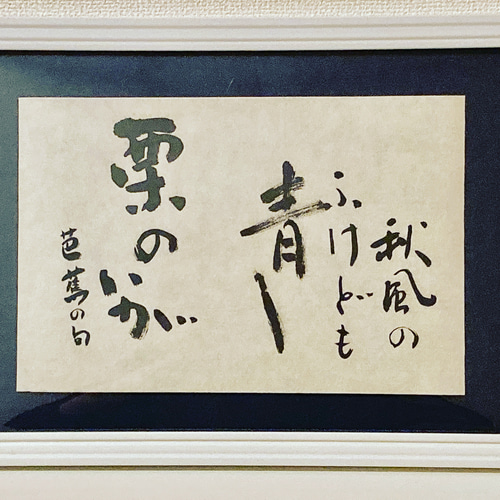 秋風の
ふけども
青し
栗のいが
芭蕉の句